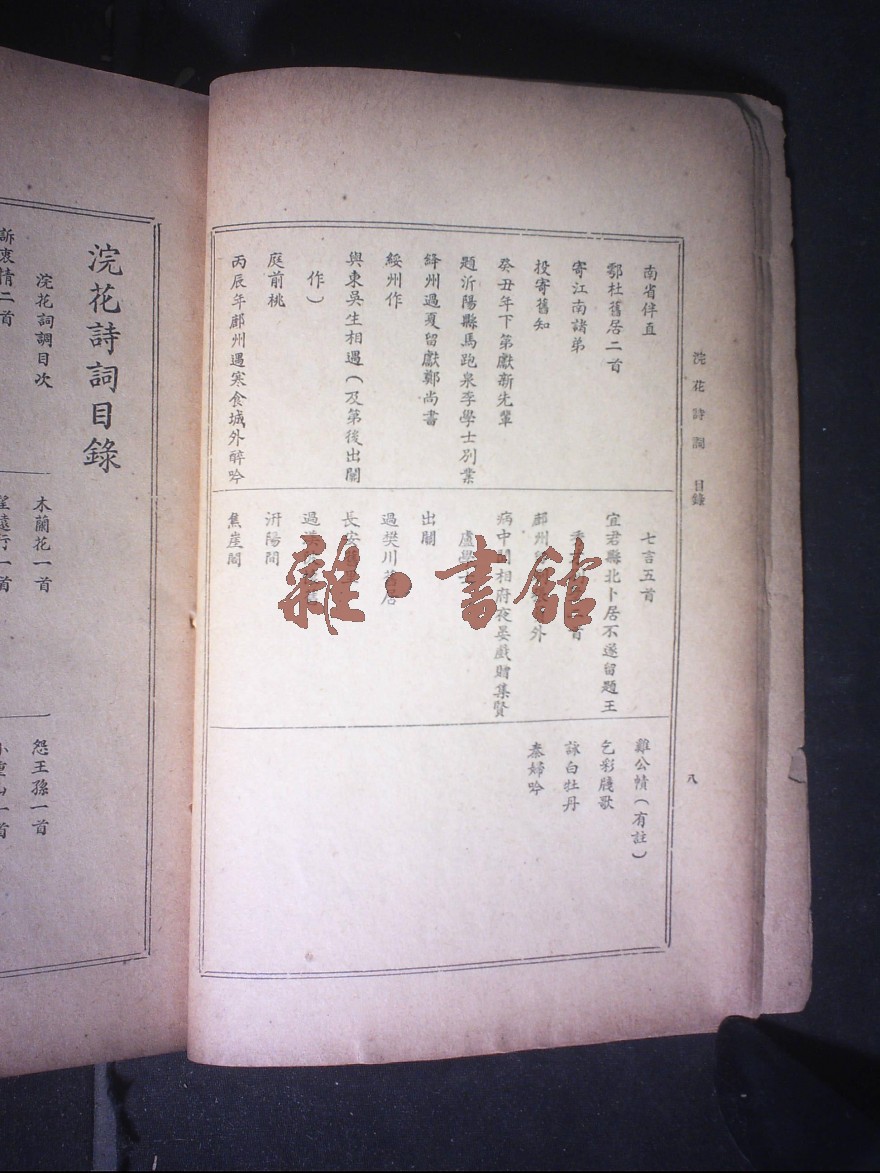 浣花詩詞 目錄
八
南省伴直
鄠杜舊居二首
寄江南諸弟
投寄舊知
癸丑年下第獻新先輩
題汧陽縣馬跑泉李學士別業
絳州過夏留獻鄭尚書
綏州作
與東吳生相遇（及第後出關
作）
庭前桃
丙辰年鄜州遇寒食城外醉吟
七言五首
宜君縣北卜居不遂留題王
首
鄜州 外
病中聞相府夜宴戲贈集賢
盧學
出關
過樊川舊居
長安
過樊
汧陽間
焦崖閣
雞公幘（有註）
乞彩牋歌
詠白牡丹
秦婦吟
雜·書館
浣花詩詞目錄
浣花詞調目次
訴衷情二首
木蘭花一首
望遠行一首
怨王孫一首
小重山一首